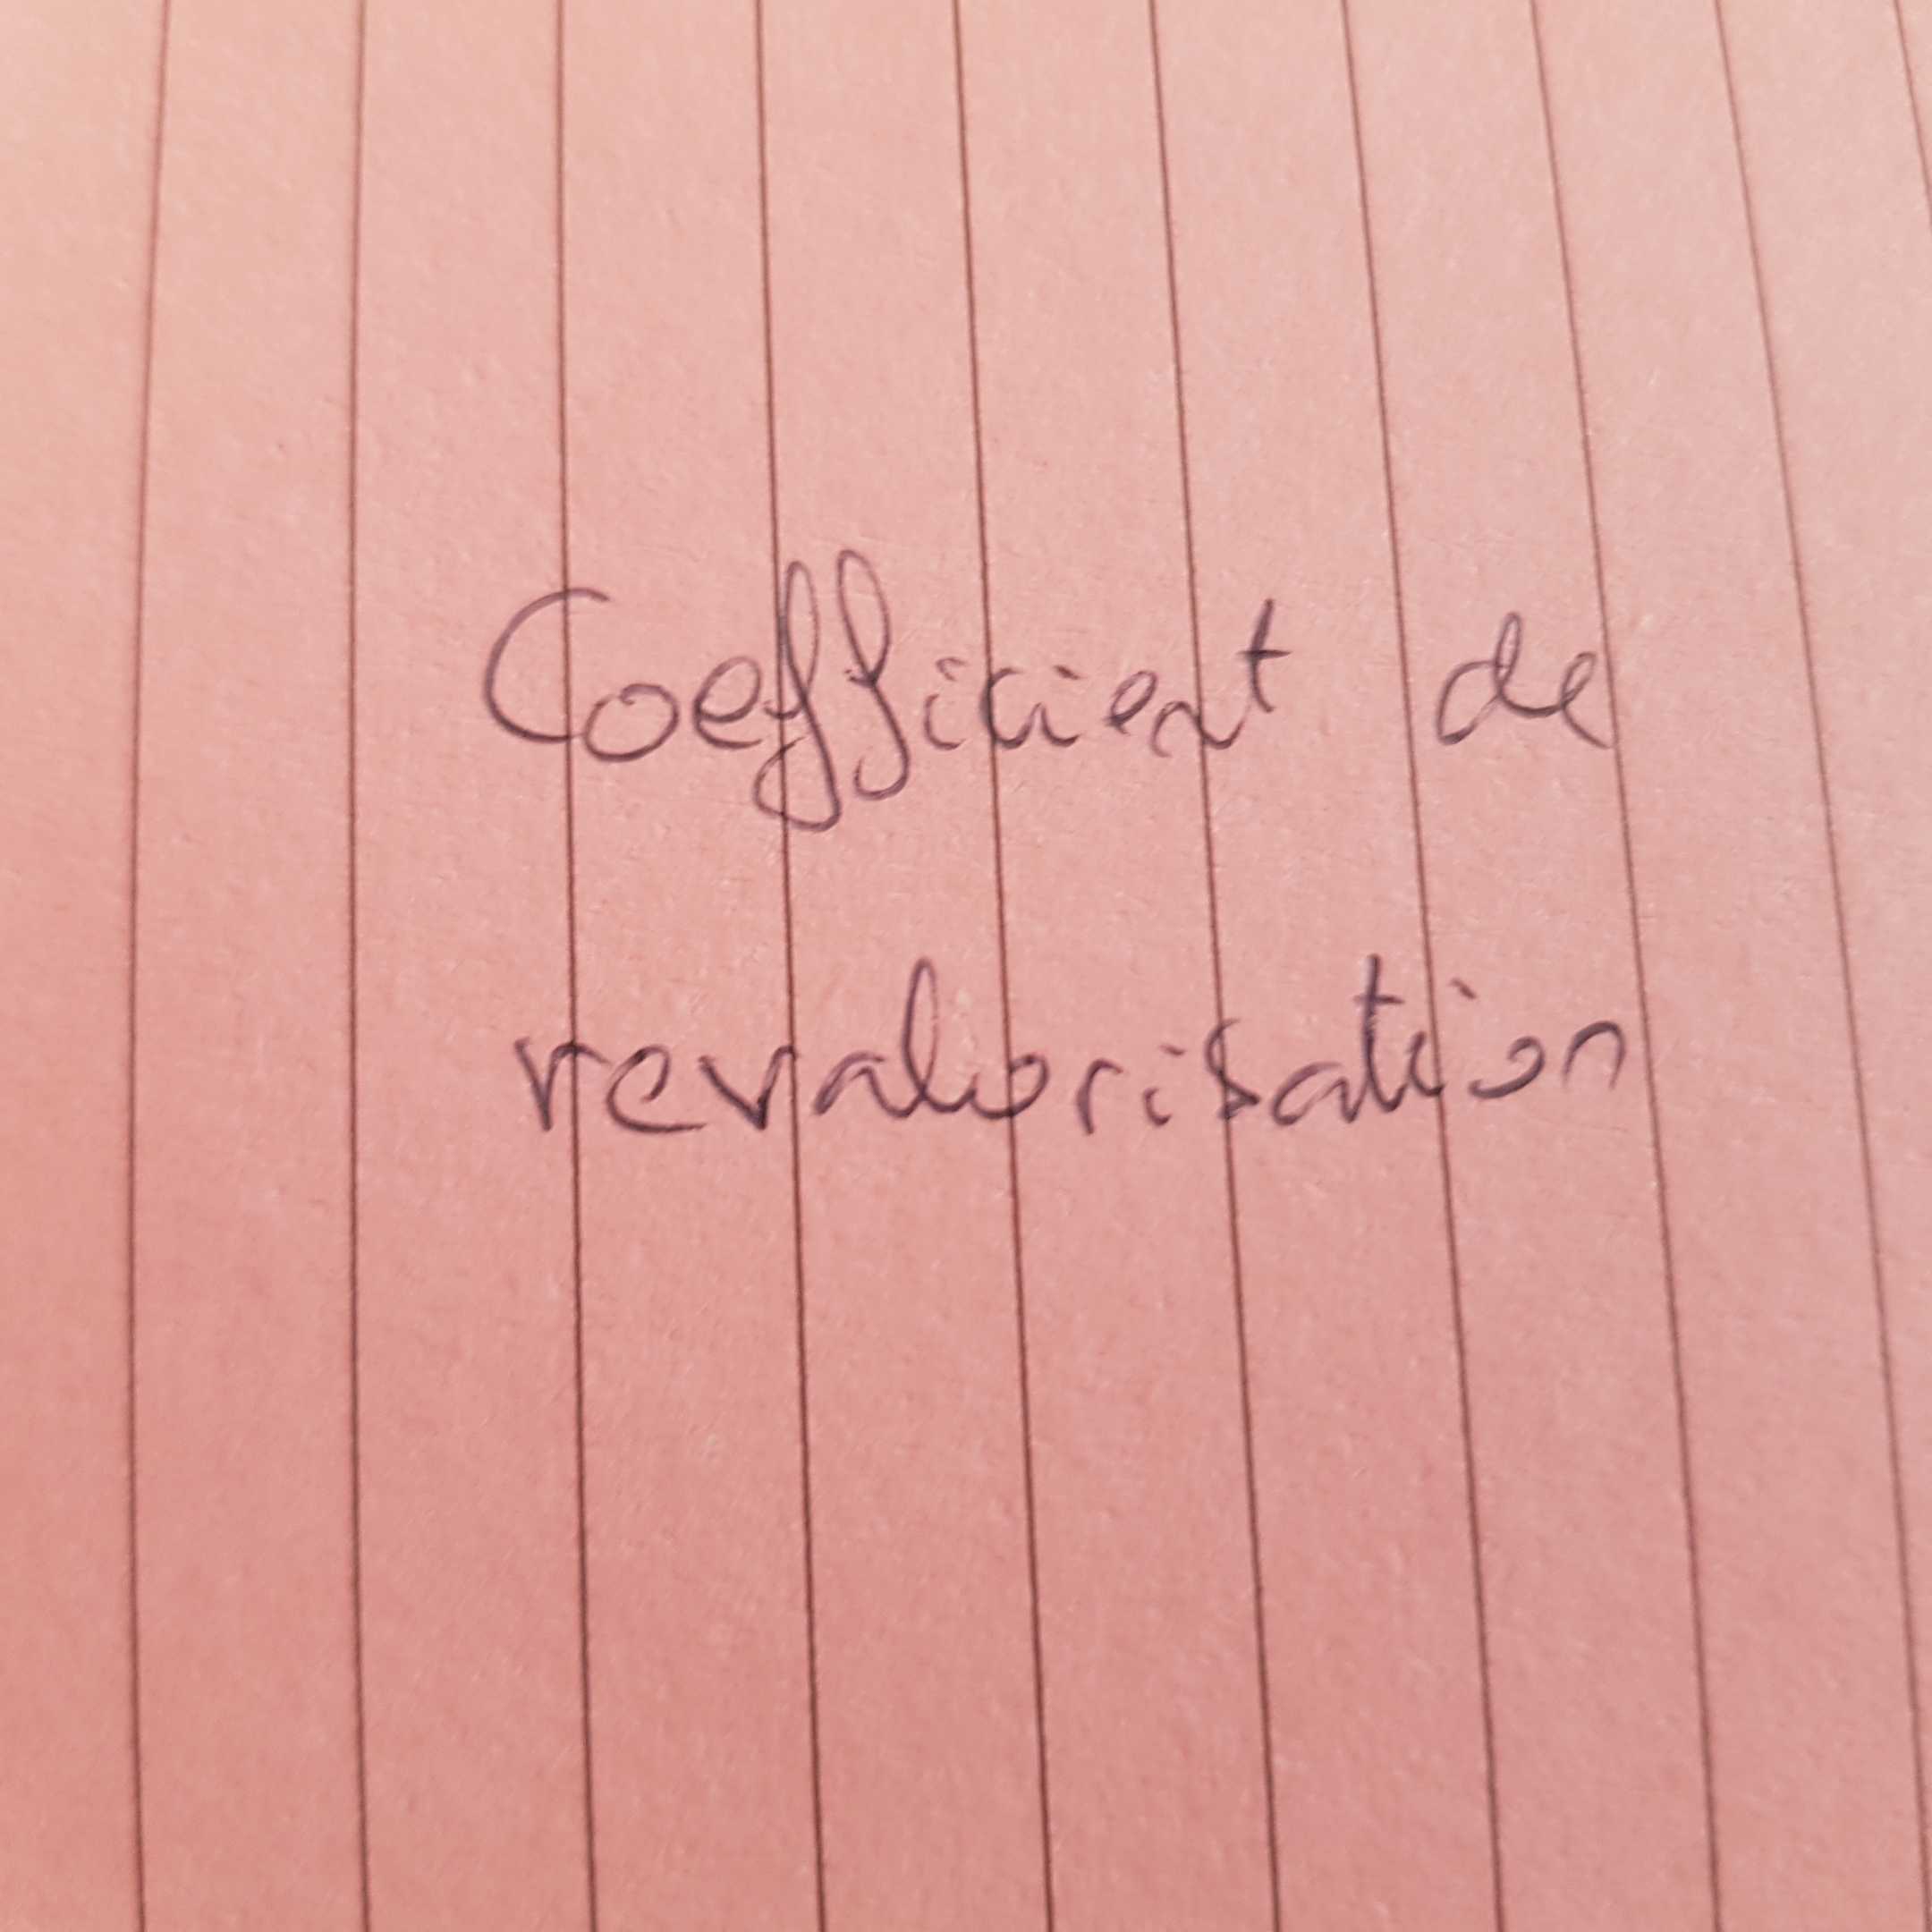 Coefficient de
revalorisation